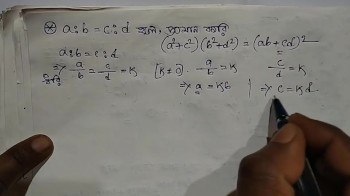 ⊛ a:b = c:d হলে, প্রমাণ করো
(a²+c²)(b²+d²) = (ab+cd)²
a:b = c:d
⇒ a/b = c/d = K [K≠0] a/b = K c/d = K
⇒ a = Kb ⇒ c = Kd